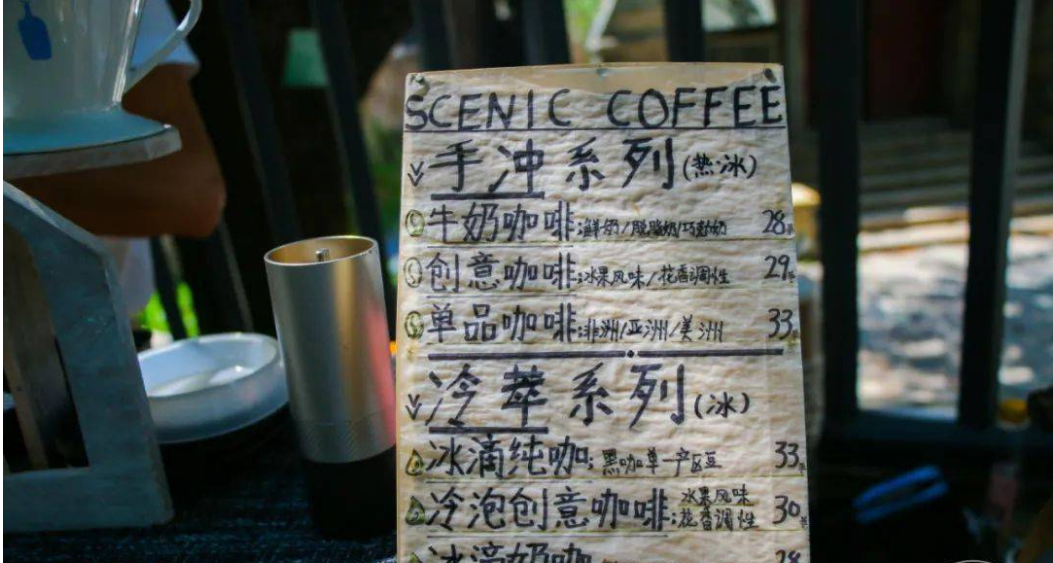 SCENIC COFFEE
手冲系列(热·冰)
牛奶咖啡:鲜奶/脱脂奶/巧动奶 28
创意咖啡:水果风味/花香调性 29
单品咖啡:非洲/亚洲/美洲 33
冷萃系列(冰)
冰滴纯咖:黑咖单一产区豆 33
冷泡创意咖啡:水果风味 花香调性 30
冰滴奶咖 28